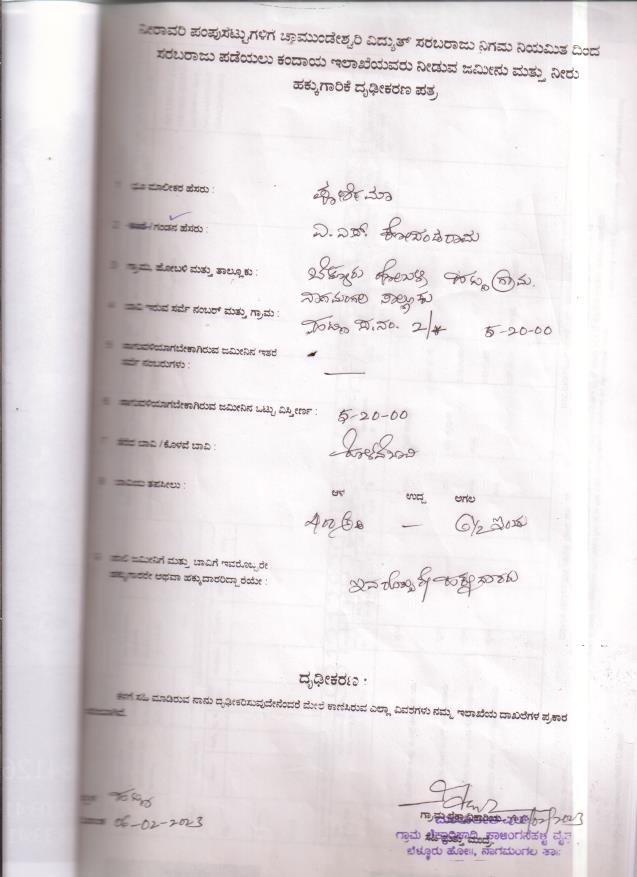 ನೀರಾವರಿ ಪಂಪುಸೆಟ್ಟುಗಳಿಗೆ ಚಾಮುಂಡೇಶ್ವರಿ ವಿದ್ಯುತ್ ಸರಬರಾಜು ನಿಗಮ ನಿಯಮಿತ ದಿಂದ
ಸರಬರಾಜು ಪಡೆಯಲು ಕಂದಾಯ ಇಲಾಖೆಯವರು ನೀಡುವ ಜಮೀನು ಮತ್ತು ನೀರು
ಹಕ್ಕುಗಾರಿಕೆ ದೃಢೀಕರಣ ಪತ್ರ
1 ಭೂ ಮಾಲೀಕರ ಹೆಸರು : ಪೂರ್ಣಿಮಾ
2 ತಂದೆ / ಗಂಡನ ಹೆಸರು : ವಿ. ಎಸ್. ಕೋದಂಡರಾಮ
3 ಗ್ರಾಮ, ಹೋಬಳಿ ಮತ್ತು ತಾಲ್ಲೂಕು : ಬೆಳ್ಳೂರು ಹೋಬಳಿ ಗ್ರಾಮ.
ನಾಗಮಂಗಲ ತಾಲ್ಲೂಕು
4 ಬಾವಿ ಇರುವ ಸರ್ವೆ ನಂಬರ್ ಮತ್ತು ಗ್ರಾಮ : ಸ.ನಂ. 2/* 5-20-00
5 ಸಾಗುವಳಿಯಾಗಬೇಕಾಗಿರುವ ಜಮೀನಿನ ಇತರೆ
ಸರ್ವೆ ನಂಬರುಗಳು : —
6 ಸಾಗುವಳಿಯಾಗಬೇಕಾಗಿರುವ ಜಮೀನಿನ ಒಟ್ಟು ವಿಸ್ತೀರ್ಣ : 5-20-00
7 ತೆರೆದ ಬಾವಿ / ಕೊಳವೆ ಬಾವಿ : ಕೊಳವೆಬಾವಿ
8 ಬಾವಿಯ ತಪಸೀಲು : ಆಳ ಉದ್ದ ಅಗಲ
— 6½ ಇಂಚು
9 ಸದರಿ ಜಮೀನಿಗೆ ಮತ್ತು ಬಾವಿಗೆ ಇವರೊಬ್ಬರೇ
ಹಕ್ಕುಗಾರರೇ ಅಥವಾ ಹಕ್ಕುದಾರರಿದ್ದಾರೆಯೇ : ಇವರೊಬ್ಬರೇ ಹಕ್ಕುದಾರರು
ದೃಢೀಕರಣ :
ಕೆಳಗೆ ಸಹಿ ಮಾಡಿರುವ ನಾನು ದೃಢೀಕರಿಸುವುದೇನೆಂದರೆ ಮೇಲೆ ಕಾಣಿಸಿರುವ ಎಲ್ಲಾ ವಿವರಗಳು ನಮ್ಮ ಇಲಾಖೆಯ ದಾಖಲೆಗಳ ಪ್ರಕಾರ
06-02-2023
ಗ್ರಾಮ ಲೆಕ್ಕಾಧಿಕಾರಿ
ಬೆಳ್ಳೂರು ಹೋ||, ನಾಗಮಂಗಲ ತಾ||